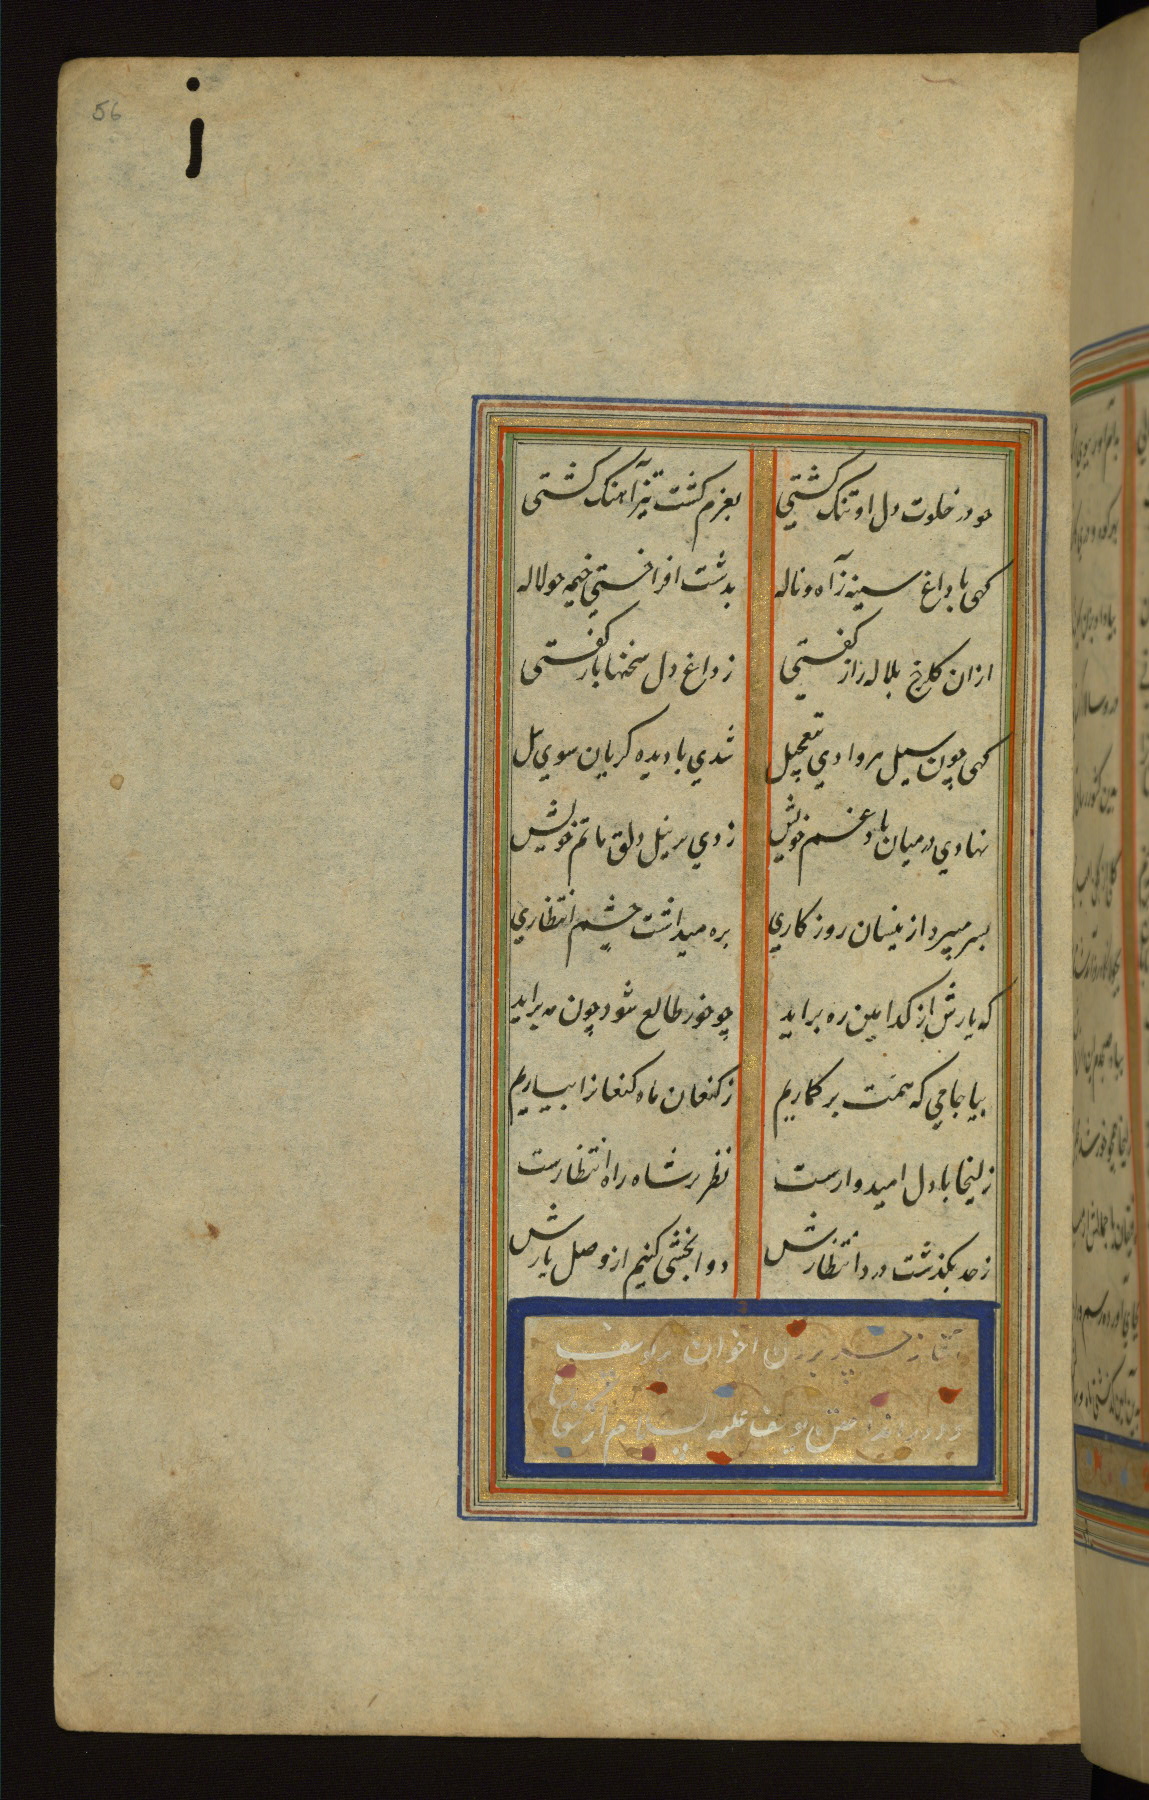 56
چو در خلوت دل او تنک کشتی بعزم کشت تیز آهنک کشتی
کهی با داغ سینه ز آه و ناله بدشت افراختی خیمه چو لاله
از ان کلرخ بلاله راز کفتی ز داغ دل سخنها باز کفتی
کهی چون سیل هر وادی بتعجیل شدی با دیده کریان سوی نیل
نهادی در میان با او غم خویش زدی بر نیل دلق ماتم خویش
بسر میبرد از ینسان روز کاری بره میداشت چشم انتظاری
که یارش از کدامین ره براید چو خور طالع شود چون مه براید
بیا جامی که همت بر کماریم ز کنعان ماه کنعانرا بیاریم
زلیخا با دل امیدوارست نظر بر شاه راه انتظارست
ز حد بکذشت درد انتظارش دوا بخشی کنیم از وصل یارش
آغاز حسد بردن اخوان بر یوسف
و دور انداختن یوسف علیه السلام از کنعان